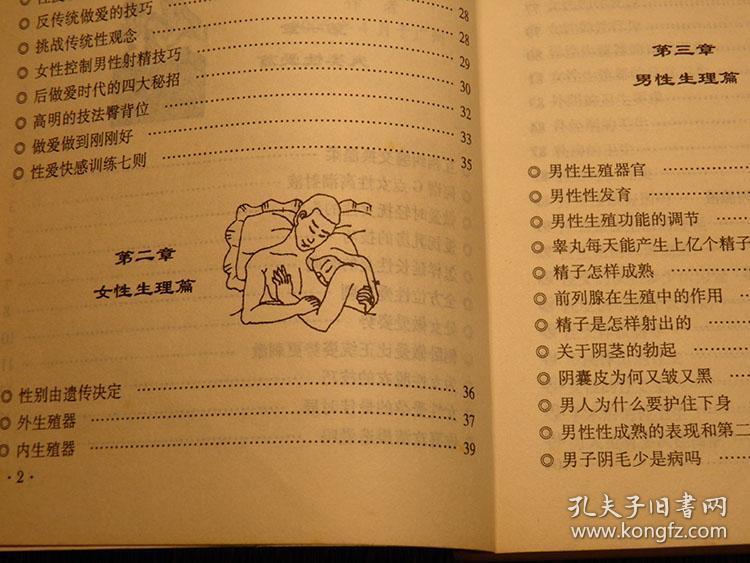 ◎ 反传统做爱的技巧 28
◎ 挑战传统性观念 28
◎ 女性控制男性射精技巧 29
◎ 后做爱时代的四大秘招 30
◎ 高明的技法臀背位 32
◎ 做爱做到刚刚好 33
◎ 性爱快感训练七则 35
第二章
女性生理篇
◎ 性别由遗传决定 36
◎ 外生殖器 37
◎ 内生殖器 39
·2·
第三章
男性生理篇
◎ 男性生殖器官
◎ 男性性发育
◎ 男性生殖功能的调节
◎ 睾丸每天能产生上亿个精子
◎ 精子怎样成熟
◎ 前列腺在生殖中的作用
◎ 精子是怎样射出的
◎ 关于阴茎的勃起
◎ 阴囊皮为何又皱又黑
◎ 男人为什么要护住下身
◎ 男性性成熟的表现和第二
◎ 男子阴毛少是病吗
孔夫子旧书网
www.kongfz.com